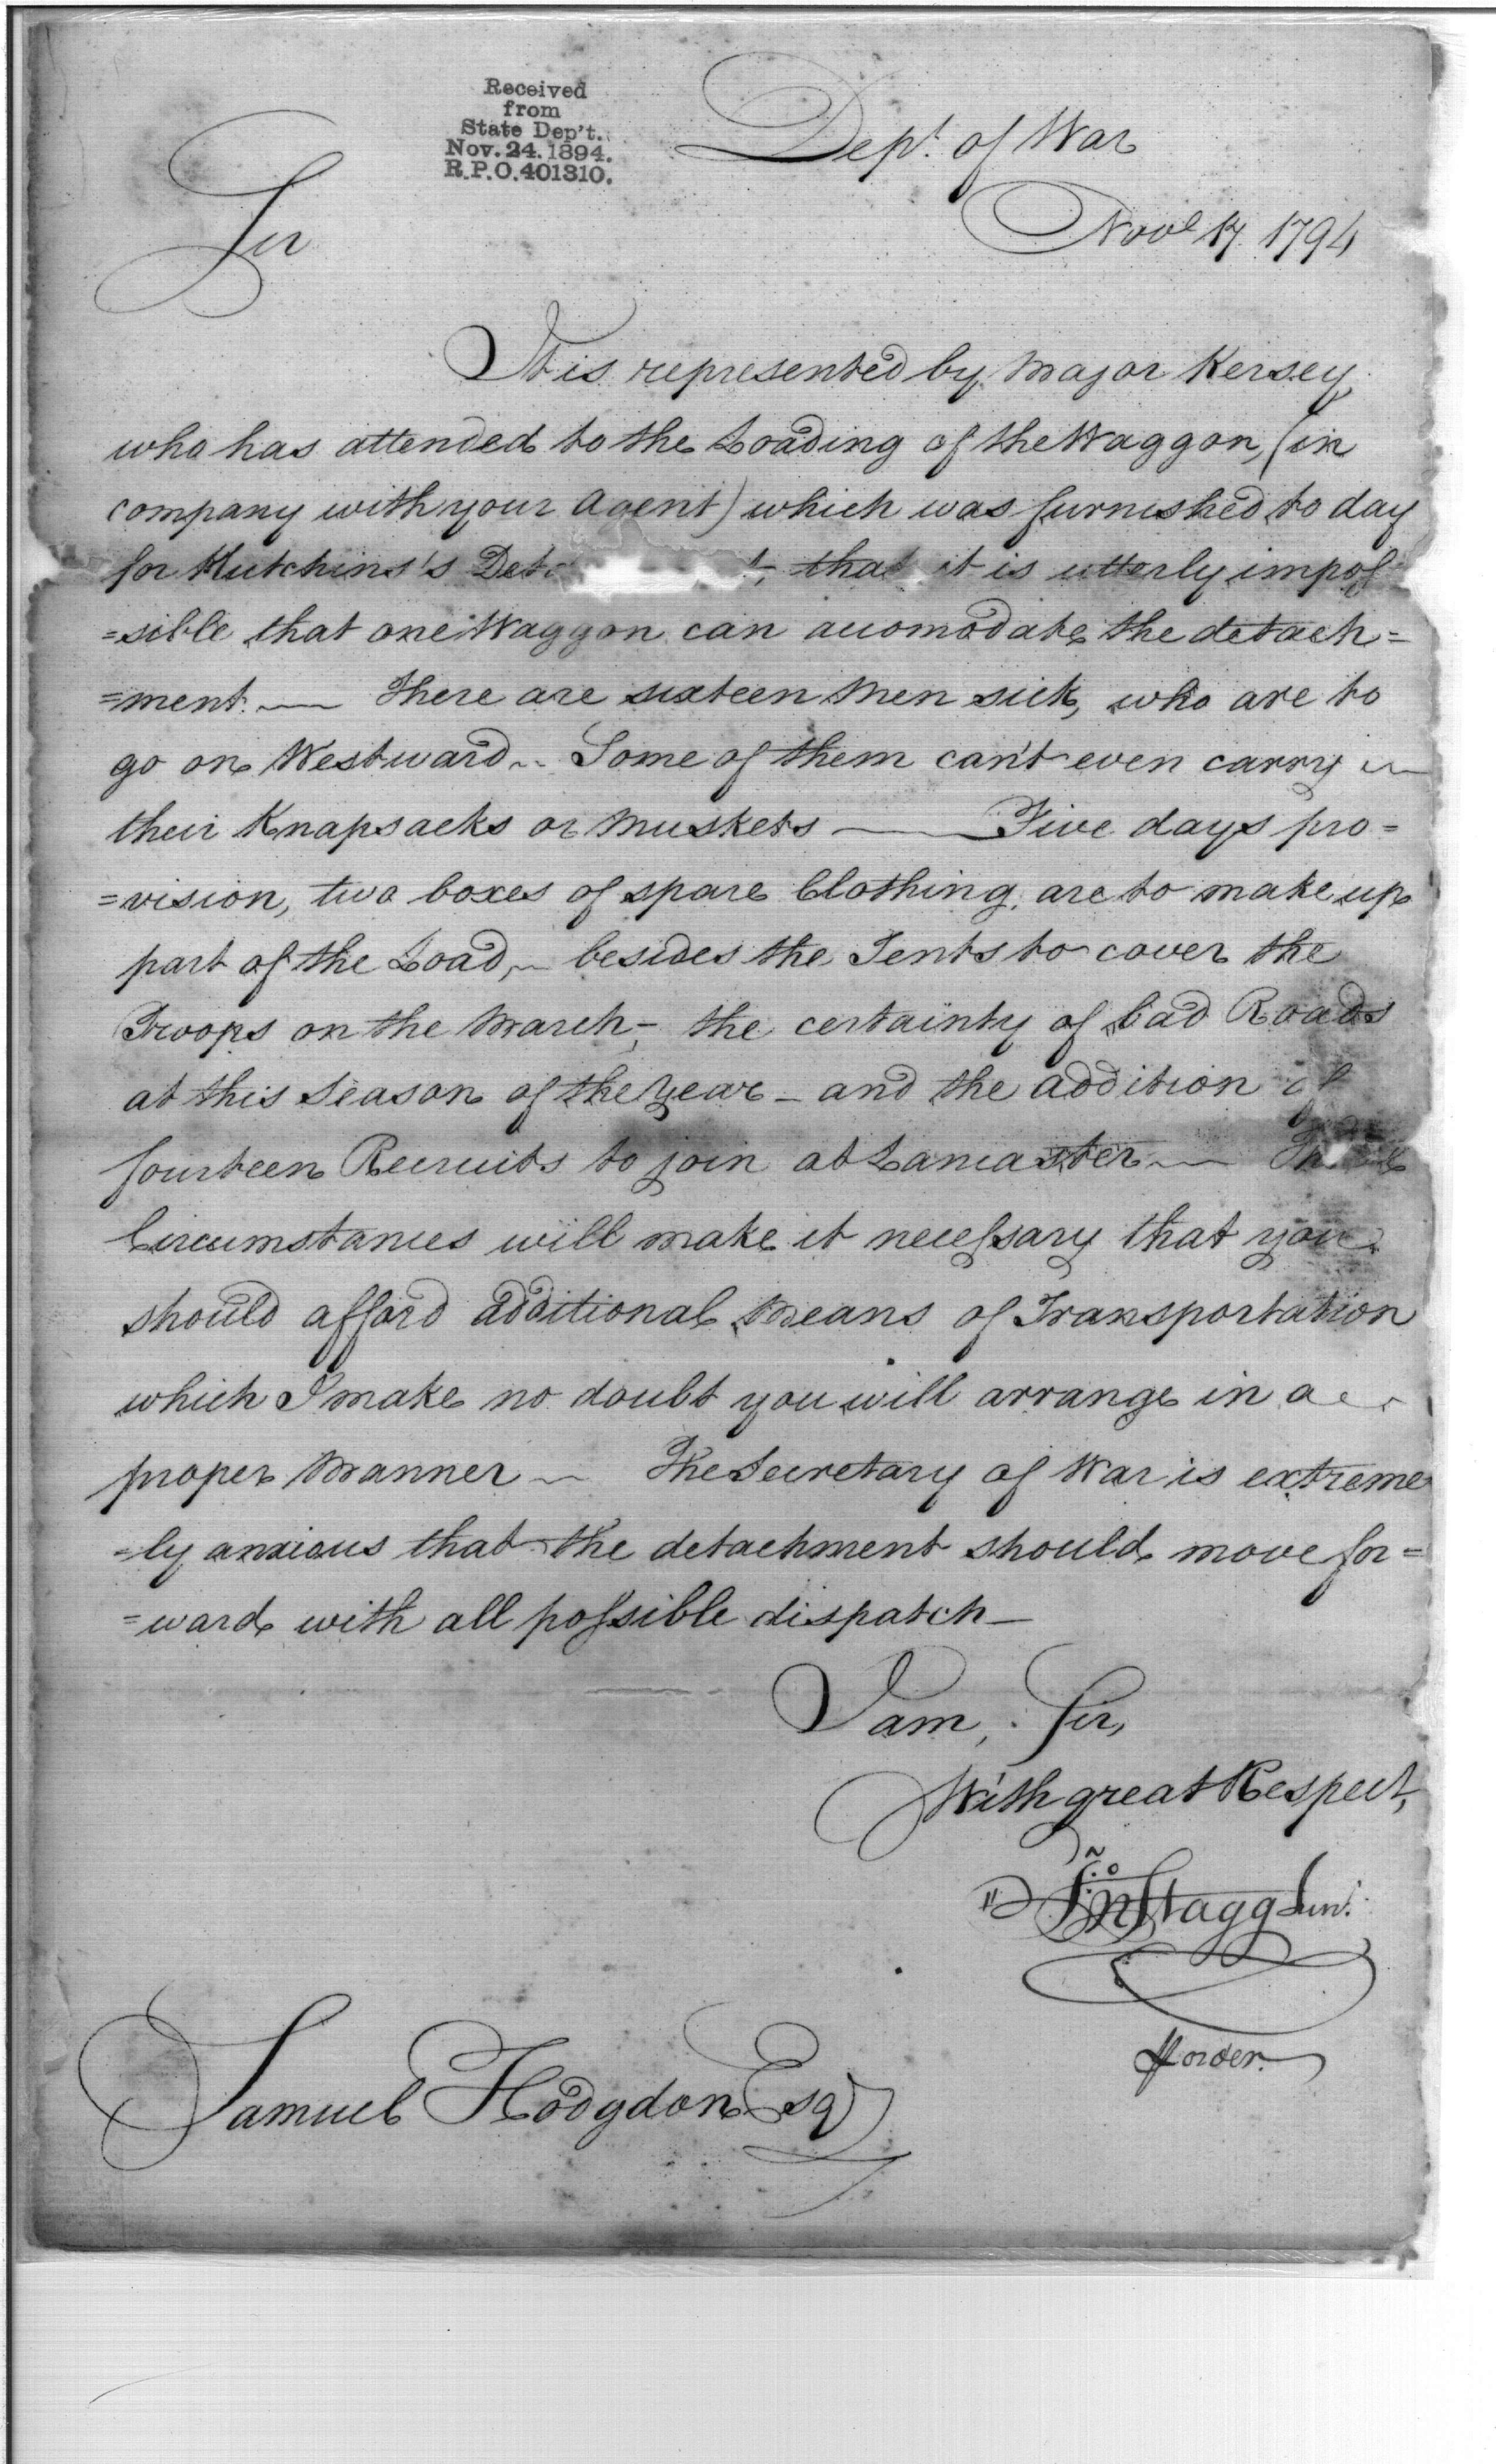 Received
from
State Dep't.
Nov. 24. 1894.
R.P.O. 401310.
Dep.t of War
Nov.l 17. 1794
Sir
It is represented by Major Kersey,
who has attended to the Loading of the Waggon, (in
company with your Agent) which was furnished to day
for Hutchins's that it is utterly impos
=sible that one Waggon can accomodate the detach=
=ment. — There are sixteen Men sick, who are to
go on Westward. Some of them can't even carry
their Knapsacks or Muskets — Five days pro=
=vision, two boxes of spare Clothing, are to make up
part of the Load, — besides the Tents to cover the
Troops on the March, — the certainty of bad Roads
at this Season of the Year — and the addition of
fourteen Recruits to join at Lancaster —
Circumstances will make it necessary that you
should afford additional Means of Transportation
which I make no doubt you will arrange in a
proper Manner — The Secretary of War is extreme
=ly anxious that the detachment should move for=
=ward with all possible dispatch —
I am, Sir,
With great Respect,
Jno Stagg Jun.r
Samuel Hodgdon Esq